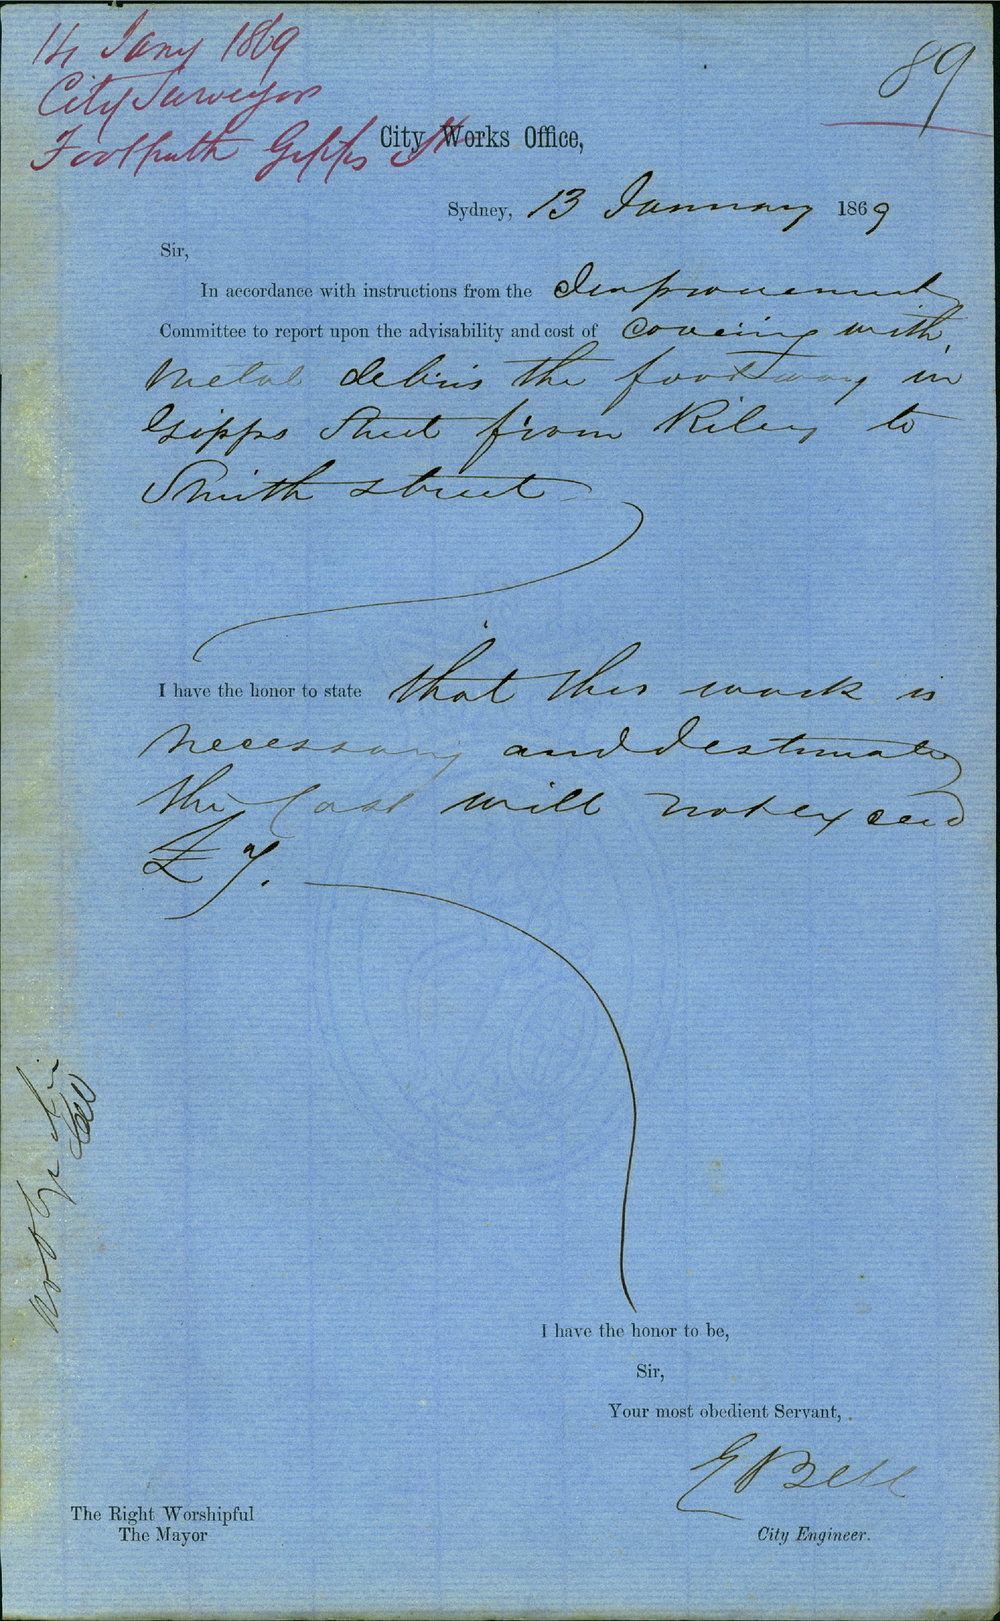 14 Jany 1869
City Surveyor
Footpath Gipps St
89
City Works Office,
Sydney, 13 January 1869
Sir,
In accordance with instructions from the Improvement
Committee to report upon the advisability and cost of covering with
Metal debris the footway in
Gipps Street from Riley to
Smith street
I have the honor to state that this work is
necessary and I estimate
the cost will not exceed
£7.
I have the honor to be,
Sir,
Your most obedient Servant,
E Bell
City Engineer.
The Right Worshipful
The Mayor